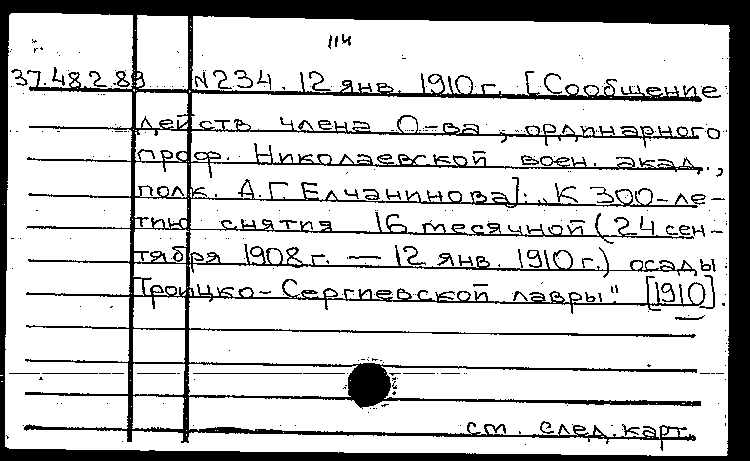 114
37.48.2.89 N234. 12 янв. 1910 г. [Сообщение
действ члена О-ва, ординарного
проф. Николаевской воен. акад.,
полк. А.Г. Елчанинова]: „К 300-ле-
тию снятия 16 месячной (24 сен-
тября 1908 г. — 12 янв. 1910 г.) осады
Троицко-Сергиевской лавры" [1910].
см. след. карт.